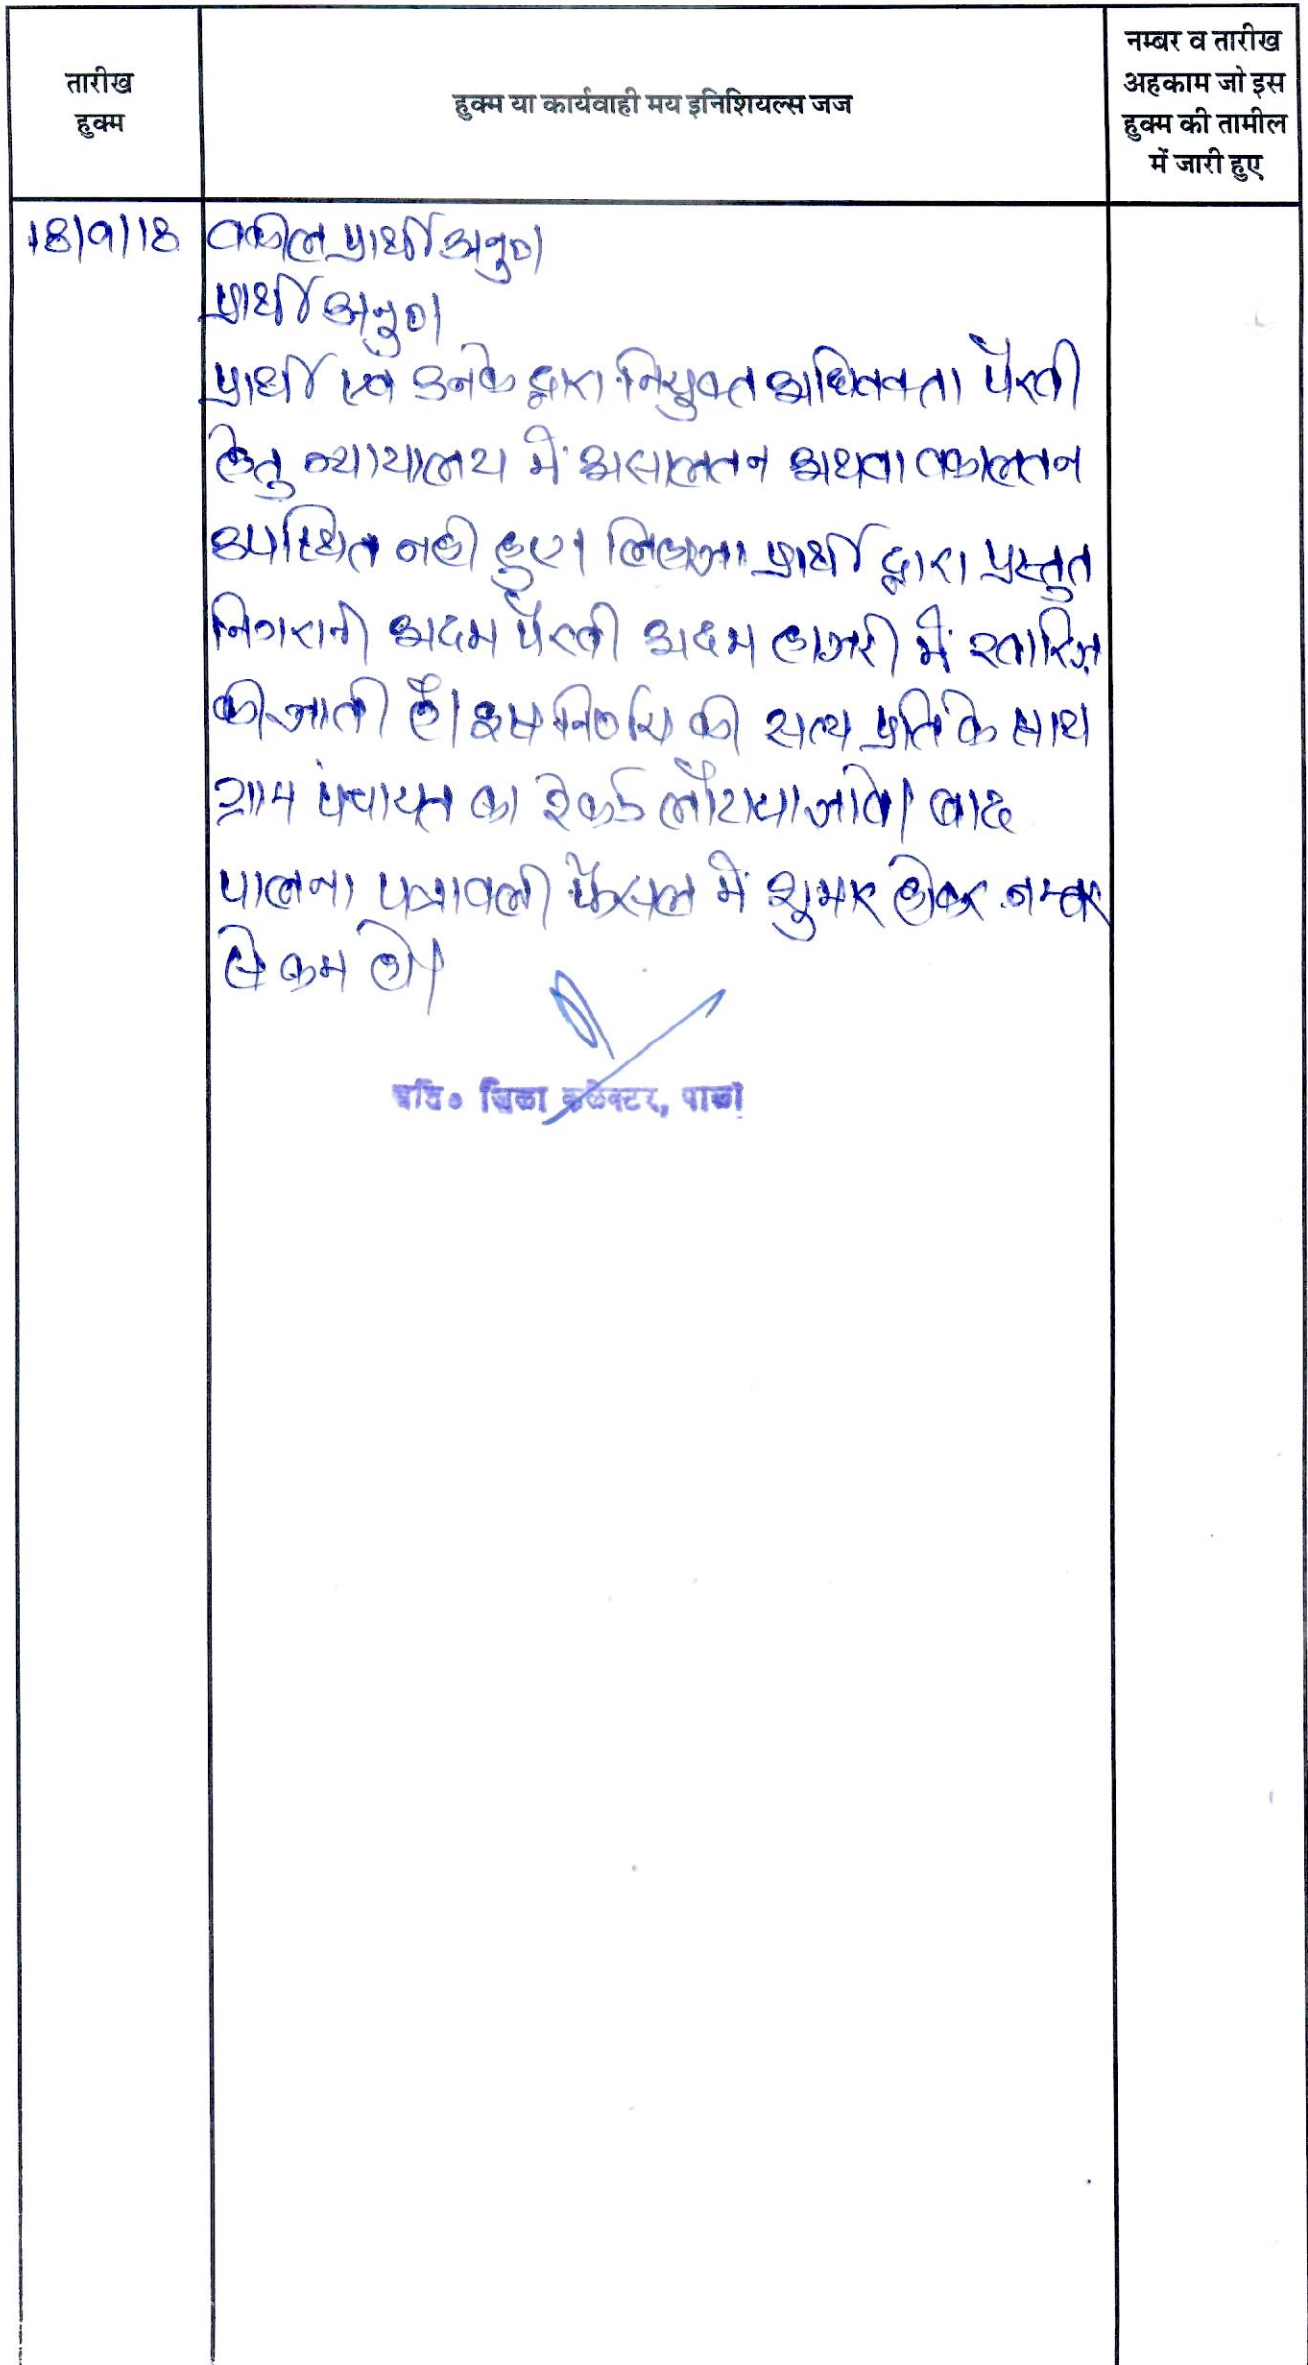 तारीख
हुक्म
हुक्म या कार्यवाही मय इनिशियल्स जज
नम्बर व तारीख
अहकाम जो इस
हुक्म की तामील
में जारी हुए
18/9/18 वकील प्रार्थी अनु०।
प्रार्थी अनु०।
प्रार्थी एवं उनके द्वारा नियुक्त अधिवक्ता पैरवी
हेतु न्यायालय में असालतन अथवा वकालतन
उपस्थित नही हुए। लिहाजा प्रार्थी द्वारा प्रस्तुत
निगरानी अदम पैरवी अदम हाजरी में खारिज
की जाती है। इस निर्णय की सत्य प्रति के साथ
ग्राम पंचायत का रेकर्ड लौटाया जावे। बाद
पालना पत्रावली फैसल में शुमार होकर नम्बर
से कम हो।
अति० जिला कलेक्टर, पाली